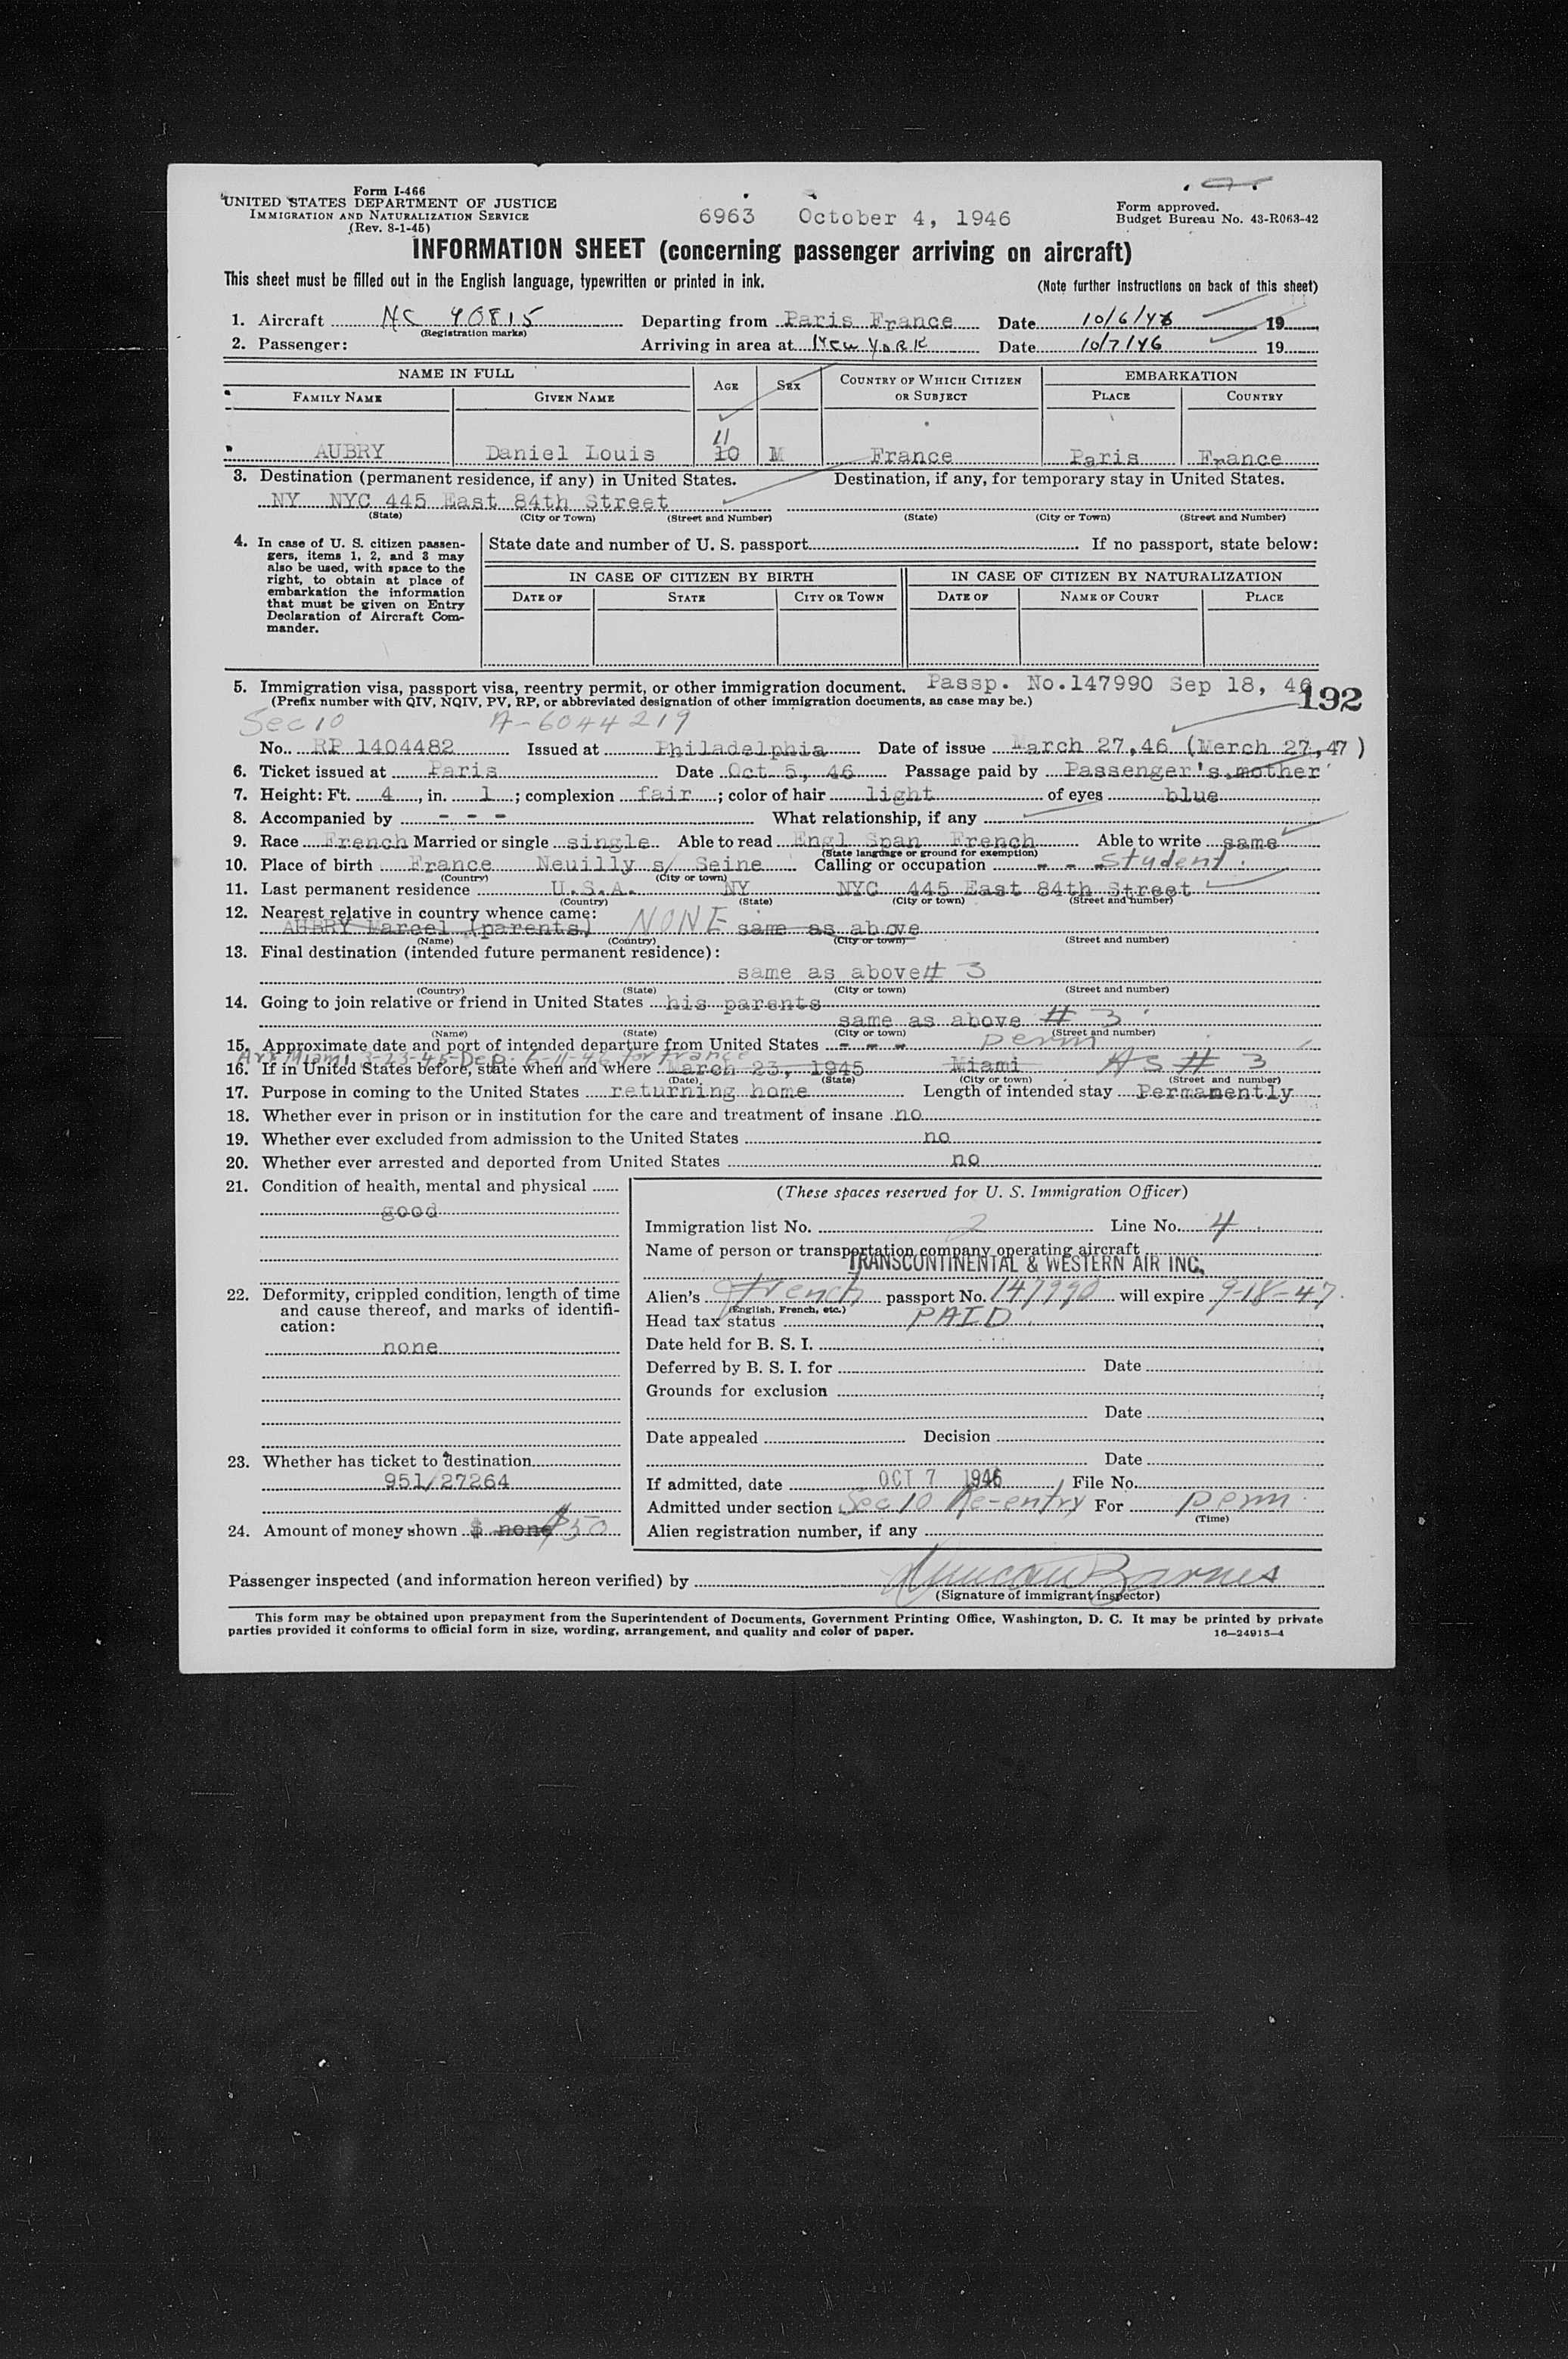 Form I-466
UNITED STATES DEPARTMENT OF JUSTICE
IMMIGRATION AND NATURALIZATION SERVICE
(Rev. 8-1-45)
6963 October 4, 1946
Form approved.
Budget Bureau No. 43-R063-42
INFORMATION SHEET (concerning passenger arriving on aircraft)
This sheet must be filled out in the English language, typewritten or printed in ink.
(Note further instructions on back of this sheet)
1. Aircraft NC 90815 Departing from Paris France Date 10/6/46 19
(Registration marks)
2. Passenger: Arriving in area at New York Date 10/7/46 19
NAME IN FULL AGE SEX COUNTRY OF WHICH CITIZEN OR SUBJECT EMBARKATION
FAMILY NAME GIVEN NAME PLACE COUNTRY
11
AUBRY Daniel Louis 10 M France Paris France
3. Destination (permanent residence, if any) in United States. Destination, if any, for temporary stay in United States.
NY NYC 445 East 84th Street
(State) (City or Town) (Street and Number) (State) (City or Town) (Street and Number)
4. In case of U. S. citizen passengers, items 1, 2, and 3 may also be used, with space to the right, to obtain at place of embarkation the information that must be given on Entry Declaration of Aircraft Commander.
State date and number of U. S. passport If no passport, state below:
IN CASE OF CITIZEN BY BIRTH IN CASE OF CITIZEN BY NATURALIZATION
DATE OF STATE CITY OR TOWN DATE OF NAME OF COURT PLACE
5. Immigration visa, passport visa, reentry permit, or other immigration document. Passp. No.147990 Sep 18, 46
192
(Prefix number with QIV, NQIV, PV, RP, or abbreviated designation of other immigration documents, as case may be.)
Sec 10 A-6044219
No. RP 1404482 Issued at Philadelphia Date of issue March 27,46 (Merch 27,47)
6. Ticket issued at Paris Date Oct 5, 46 Passage paid by Passenger's mother
7. Height: Ft. 4, in. 1; complexion fair; color of hair light of eyes blue
8. Accompanied by - - - What relationship, if any
9. Race French Married or single single Able to read Engl Span French Able to write same
(State language or ground for exemption)
10. Place of birth France Neuilly s/ Seine Calling or occupation - - - student
(Country) (City or town)
11. Last permanent residence U.S.A. NY NYC 445 East 84th Street
(Country) (State) (City or town) (Street and number)
12. Nearest relative in country whence came:
AUBRY Marcel (parents) NONE same as above
(Name) (Country) (City or town) (Street and number)
13. Final destination (intended future permanent residence):
same as above # 3
(Country) (State) (City or town) (Street and number)
14. Going to join relative or friend in United States his parents
same as above # 3
(Name) (State) (City or town) (Street and number)
15. Approximate date and port of intended departure from United States - - - perm
Arr Miami 3-23-45-Dep. 6-11-46 for France
16. If in United States before, state when and where March 23, 1945 Miami As # 3
(Date) (State) (City or town) (Street and number)
17. Purpose in coming to the United States returning home Length of intended stay Permanently
18. Whether ever in prison or in institution for the care and treatment of insane no
19. Whether ever excluded from admission to the United States no
20. Whether ever arrested and deported from United States no
21. Condition of health, mental and physical
good
22. Deformity, crippled condition, length of time and cause thereof, and marks of identification:
none
23. Whether has ticket to destination
951/27264
24. Amount of money shown $ none $50
(These spaces reserved for U. S. Immigration Officer)
Immigration list No. 2 Line No. 4
Name of person or transportation company operating aircraft
TRANSCONTINENTAL & WESTERN AIR INC.
Alien's French passport No. 147990 will expire 9-18-47
(English, French, etc.)
Head tax status PAID
Date held for B. S. I.
Deferred by B. S. I. for Date
Grounds for exclusion
Date
Date appealed Decision
Date
If admitted, date OCT 7 1946 File No.
Admitted under section Sec 10 Re-entry For perm
(Time)
Alien registration number, if any
Passenger inspected (and information hereon verified) by Duncan Barnes
(Signature of immigrant inspector)
This form may be obtained upon prepayment from the Superintendent of Documents, Government Printing Office, Washington, D. C. It may be printed by private
parties provided it conforms to official form in size, wording, arrangement, and quality and color of paper. 16—24915-4